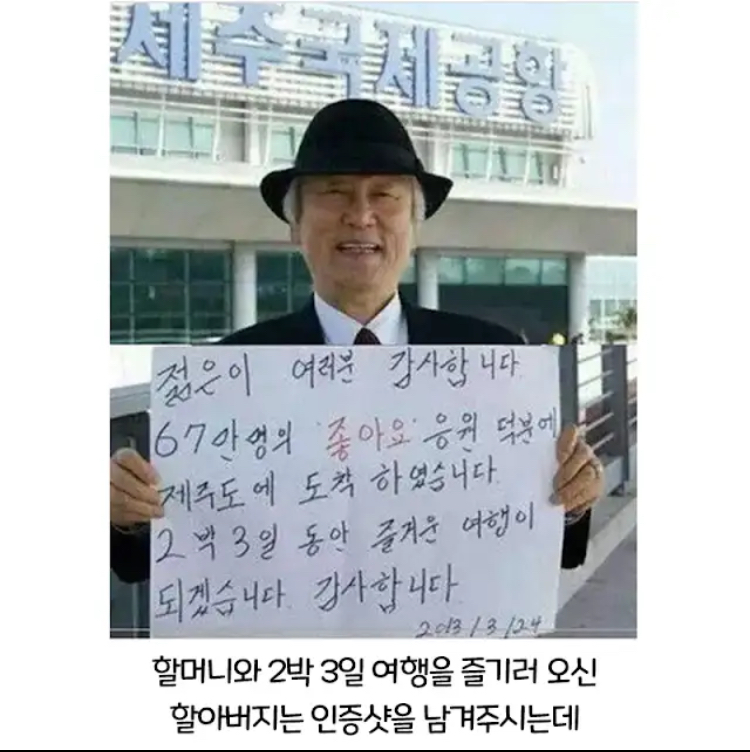 제주국제공항
젊은이 여러분 감사합니다.
67만명의 '좋아요' 응원 덕분에
제주도에 도착 하였습니다.
2박 3일 동안 즐거운 여행이
되겠습니다. 감사합니다
2013/3/24
할머니와 2박 3일 여행을 즐기러 오신
할아버지는 인증샷을 남겨주시는데